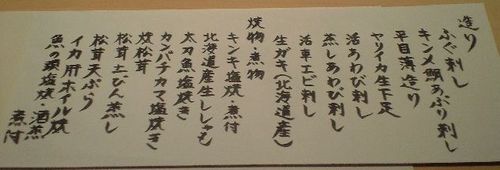 造り
ふぐ刺し
キンメ鯛あぶり刺し
平目薄造り
ヤリイカ生下足
活あわび刺し
蒸しあわび刺し
活車エビ刺し
生ガキ(北海道産)
焼物・煮物
キンキ塩焼・煮付
北海道産生ししゃも
太刀魚塩焼き
カンパチカマ塩焼き
焼松茸
松茸土びん蒸し
松茸天ぷら
イカ肝ホイル焼
魚の頭塩焼・酒蒸
煮付